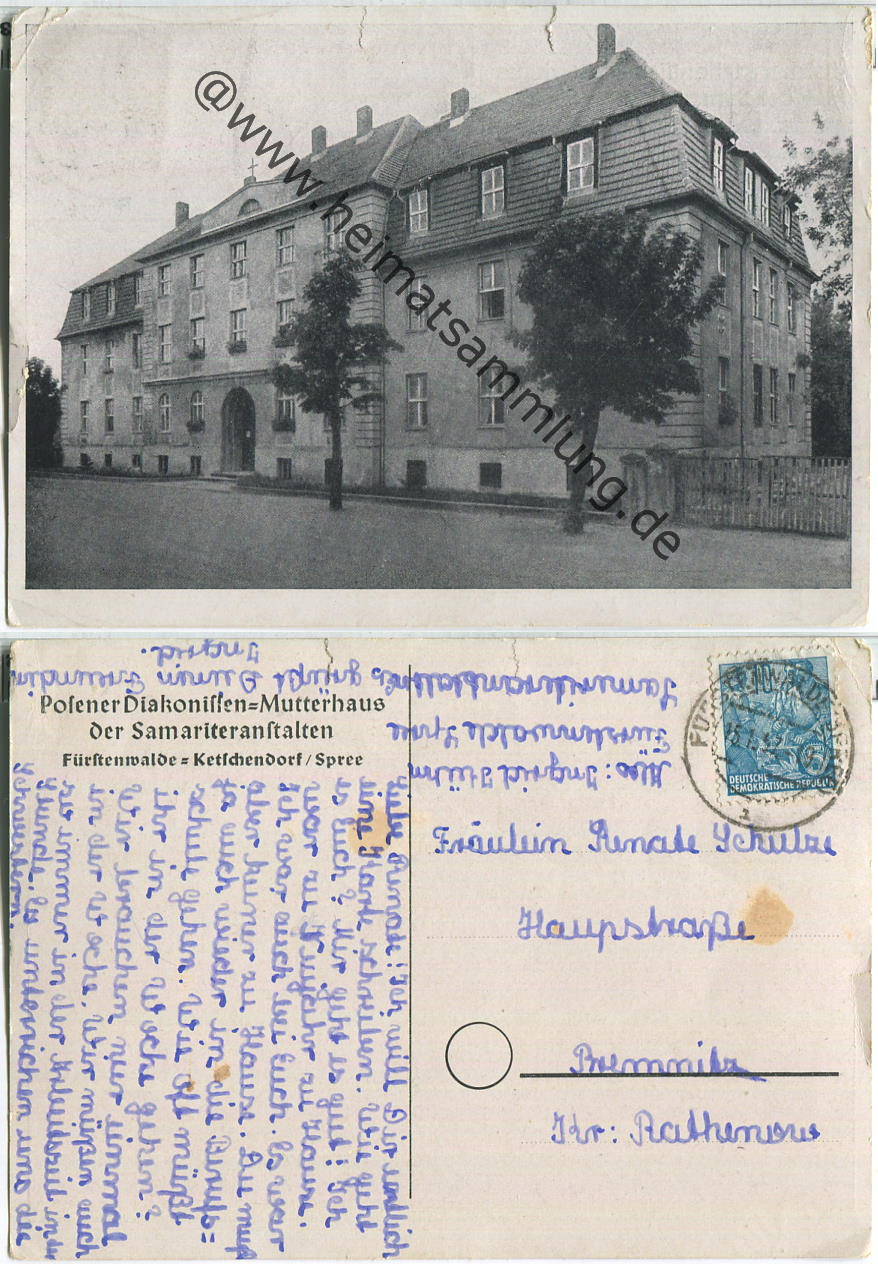 @www.heimatsammlung.de
Posener Diakonissen=Mutterhaus
der Samariteranstalten
Fürstenwalde=Ketschendorf/Spree
DEUTSCHE
DEMOKRATISCHE REPUBLIK
Abs: Ingrid
Fürstenwalde Spree
Samariteranstalten
Fräulein Renate Schulze
Haupstraße
Premnitz
Kr: Rathenow
Liebe Renate! Ich will Dir endlich
eine Karte schreiben. Wie geht
es Euch? Mir geht es gut! Ich
war zu Neujahr zu Hause.
Ich war auch bei Euch. Es war
aber keiner zu Hause. Du muß
ja auch wieder in die Berufs=
schule gehen. Wie oft müßt
ihr in der Woche gehen?
Wir brauchen nur einmal
in der Woche. Wir müßen auch
immer in der Arbeitszeit in der
Stunde. Es unterrichen uns die
Schwestern.
Es grüßt Deine Freundin
Ingrid.